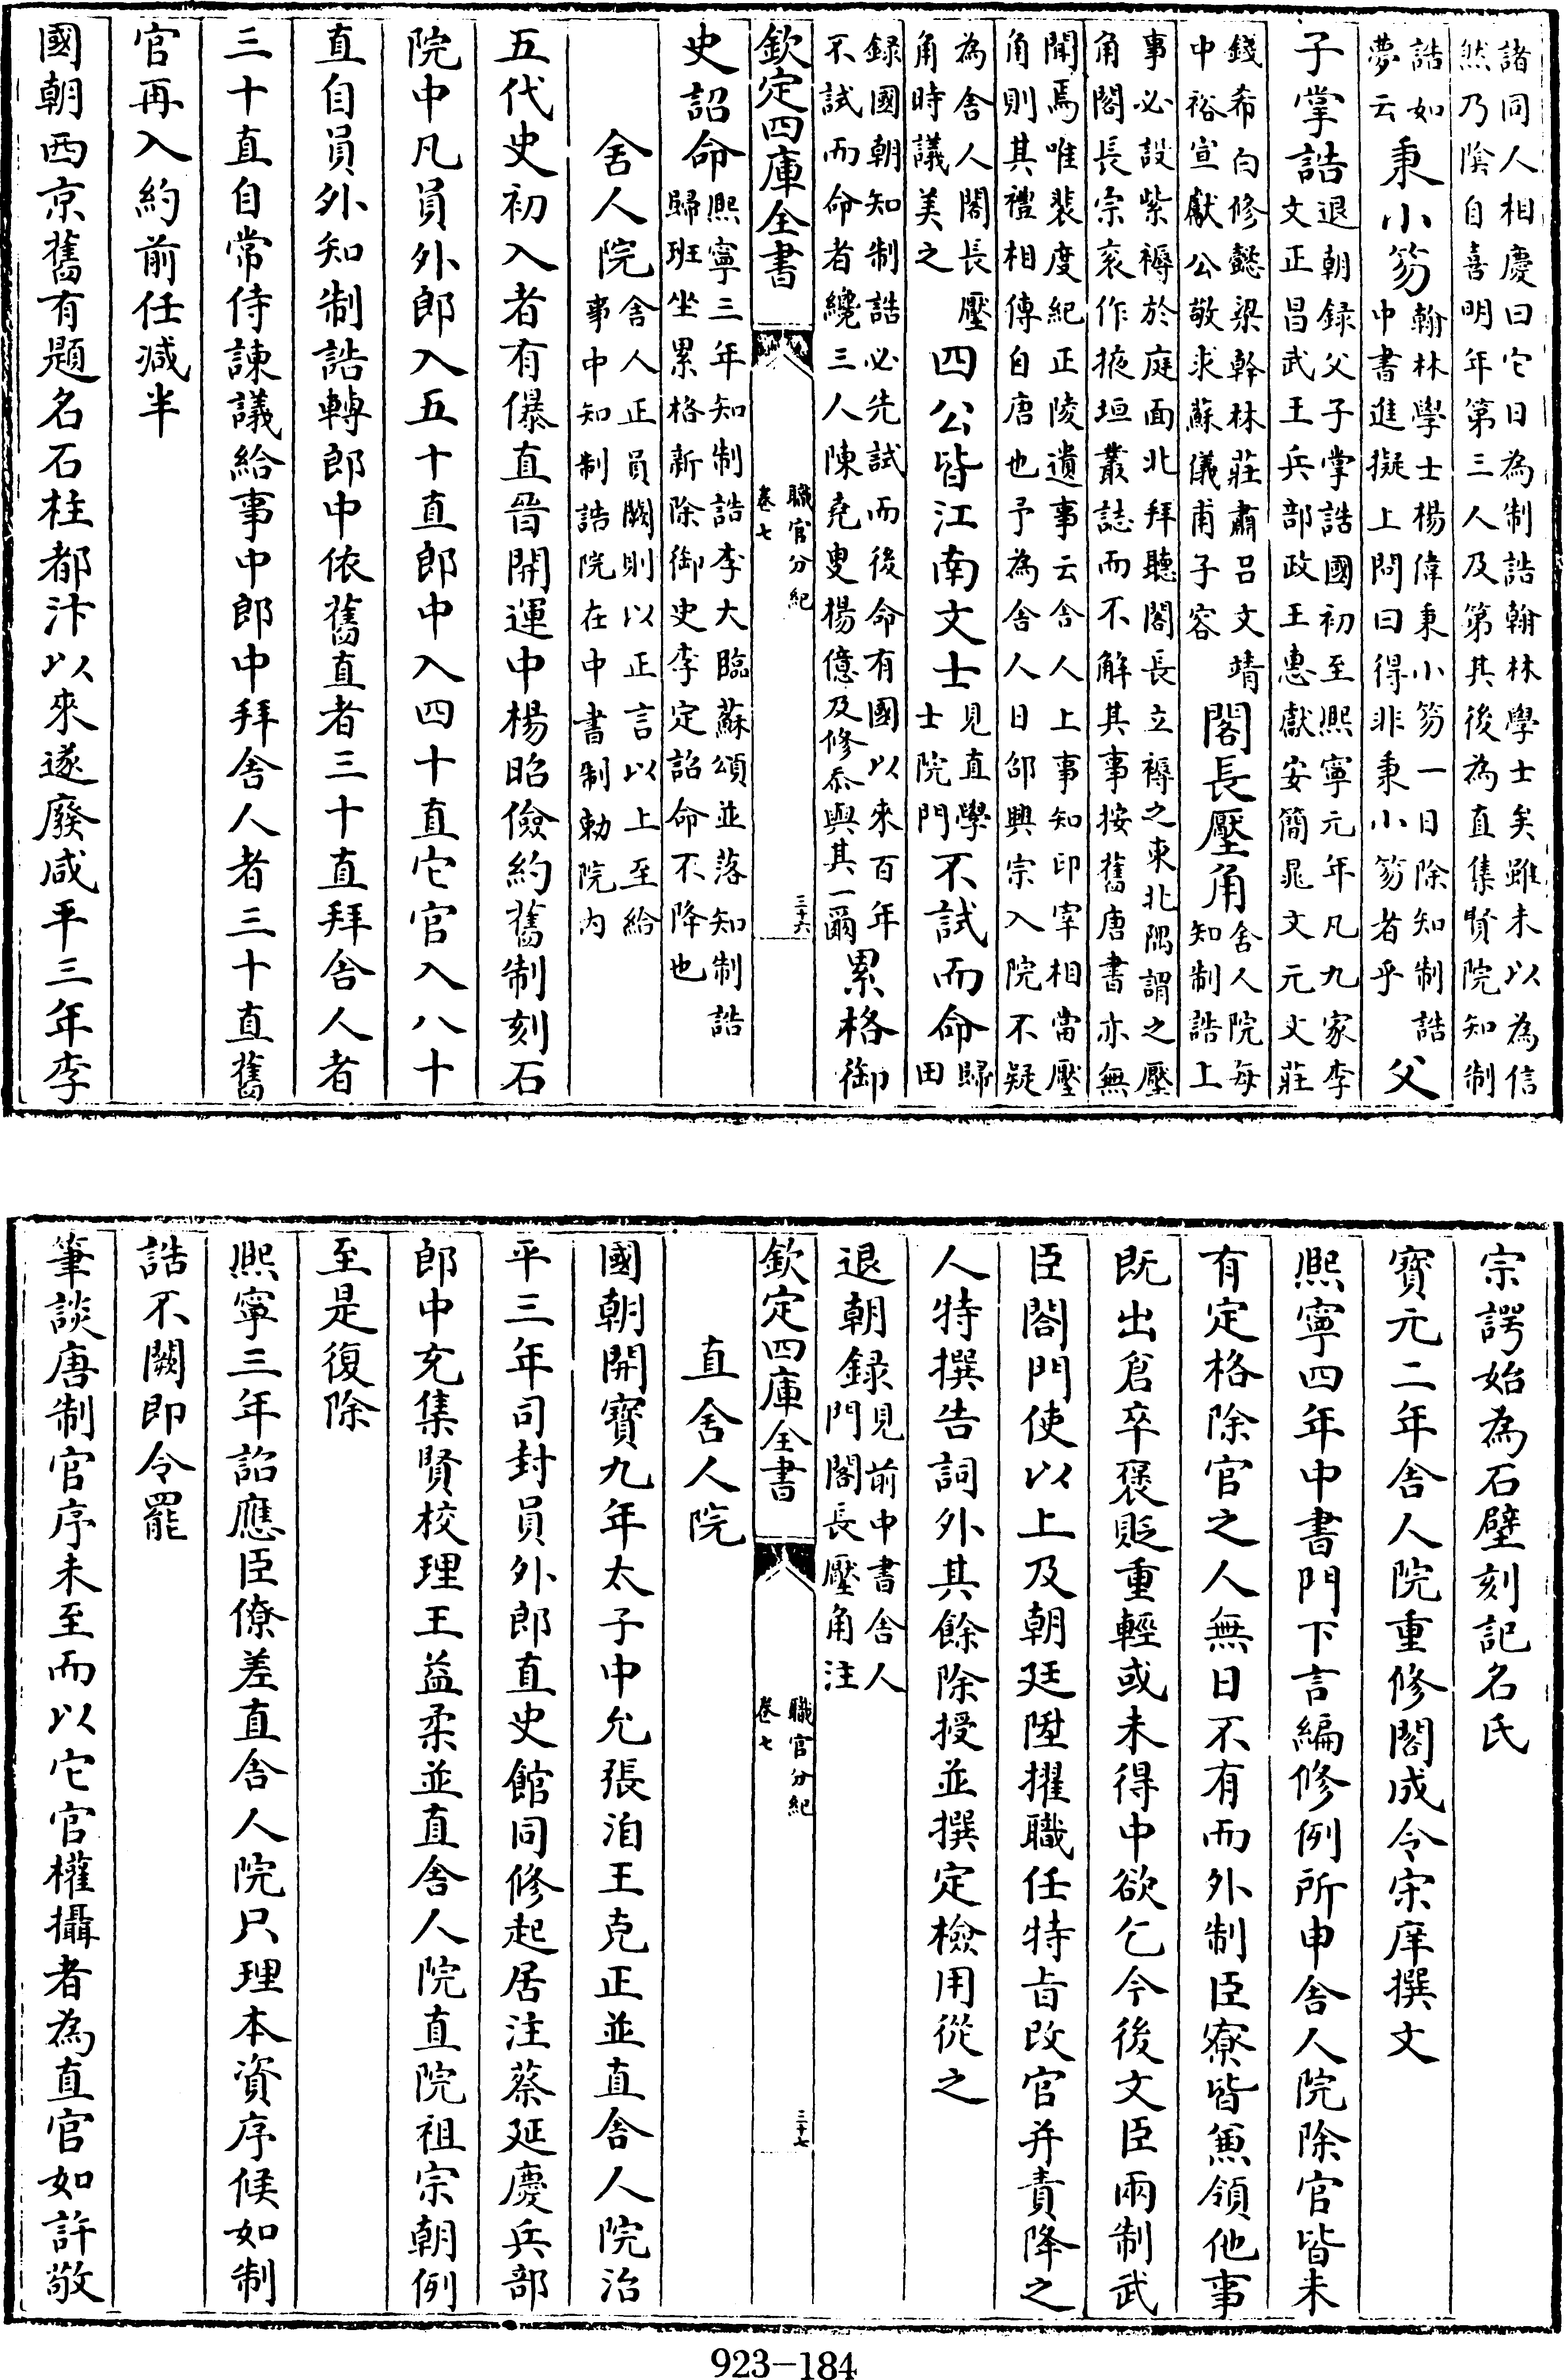 諸同人相慶曰它日為制誥翰林學士矣雖未以為信
然乃陰自喜明年第三人及第其後為直集賢院知制
誥如夢云秉小笏翰林學士楊偉秉小笏一日除知制誥中書進擬上問曰得非秉小笏者乎父
子掌誥退朝録父子掌誥國初至熙寧元年凡九家李文正昌武王兵部政王惠獻安簡晁文元文莊
錢希白修懿梁翰林莊肅吕文靖中裕宣獻公敬求蘇儀甫子容閣長壓角舍人院每知制誥上
事必設紫褥於庭面北拜聽閣長立褥之東北隅謂之壓
角閣長宗衮作掖垣叢誌而不解其事按舊唐書亦無
聞焉唯裴度紀正陵遺事云舍人上事知印宰相當壓
角則其禮相傳自唐也予為舍人日邵興宗入院不疑
為舍人閣長壓角時議美之四公皆江南文士見直學士院門不試而命歸田
録國朝知制誥必先試而後命有國以來百年不試而命者纔三人陳堯叟楊億及修忝與其一爾累格御
欽定四庫全書
職官分紀
卷七
三十六
史詔命熙寧三年知制誥李大臨蘇頌並落知制誥歸班坐累格新除御史李定詔命不降也
舍人院舍人正員闕則以正言以上至給事中知制誥院在中書制勅院内
五代史初入者有儤直晉開運中楊昭儉約舊制刻石
院中凡員外郎入五十直郎中入四十直它官入八十
直自員外知制誥轉郎中依舊直者三十直拜舍人者
三十直自常侍諫議給事中郎中拜舍人者三十直舊
官再入約前任減半
國朝西京舊有題名石柱都汴以來遂廢咸平三年李
宗諤始為石壁刻記名氏
寶元二年舍人院重修閣成令宋庠撰文
熙寧四年中書門下言編修例所申舍人院除官皆未
有定格除官之人無日不有而外制臣寮皆兼領他事
既出倉卒褒貶重輕或未得中欲乞今後文臣兩制武
臣閤門使以上及朝廷陞擢職任特㫖改官并責降之
人特撰告詞外其餘除授並撰定檢用從之
退朝録見前中書舍人門閣長壓角注
欽定四庫全書
職官分紀
卷七
三十七
直舍人院
國朝開寶九年太子中允張洎王克正並直舍人院治
平三年司封員外郎直史館同修起居注蔡延慶兵部
郎中充集賢校理王益柔並直舍人院直院祖宗朝例
至是復除
熙寧三年詔應臣僚差直舍人院只理本資序候如制
誥不闕即令罷
筆談唐制官序未至而以它官權攝者為直官如許敬
923-184